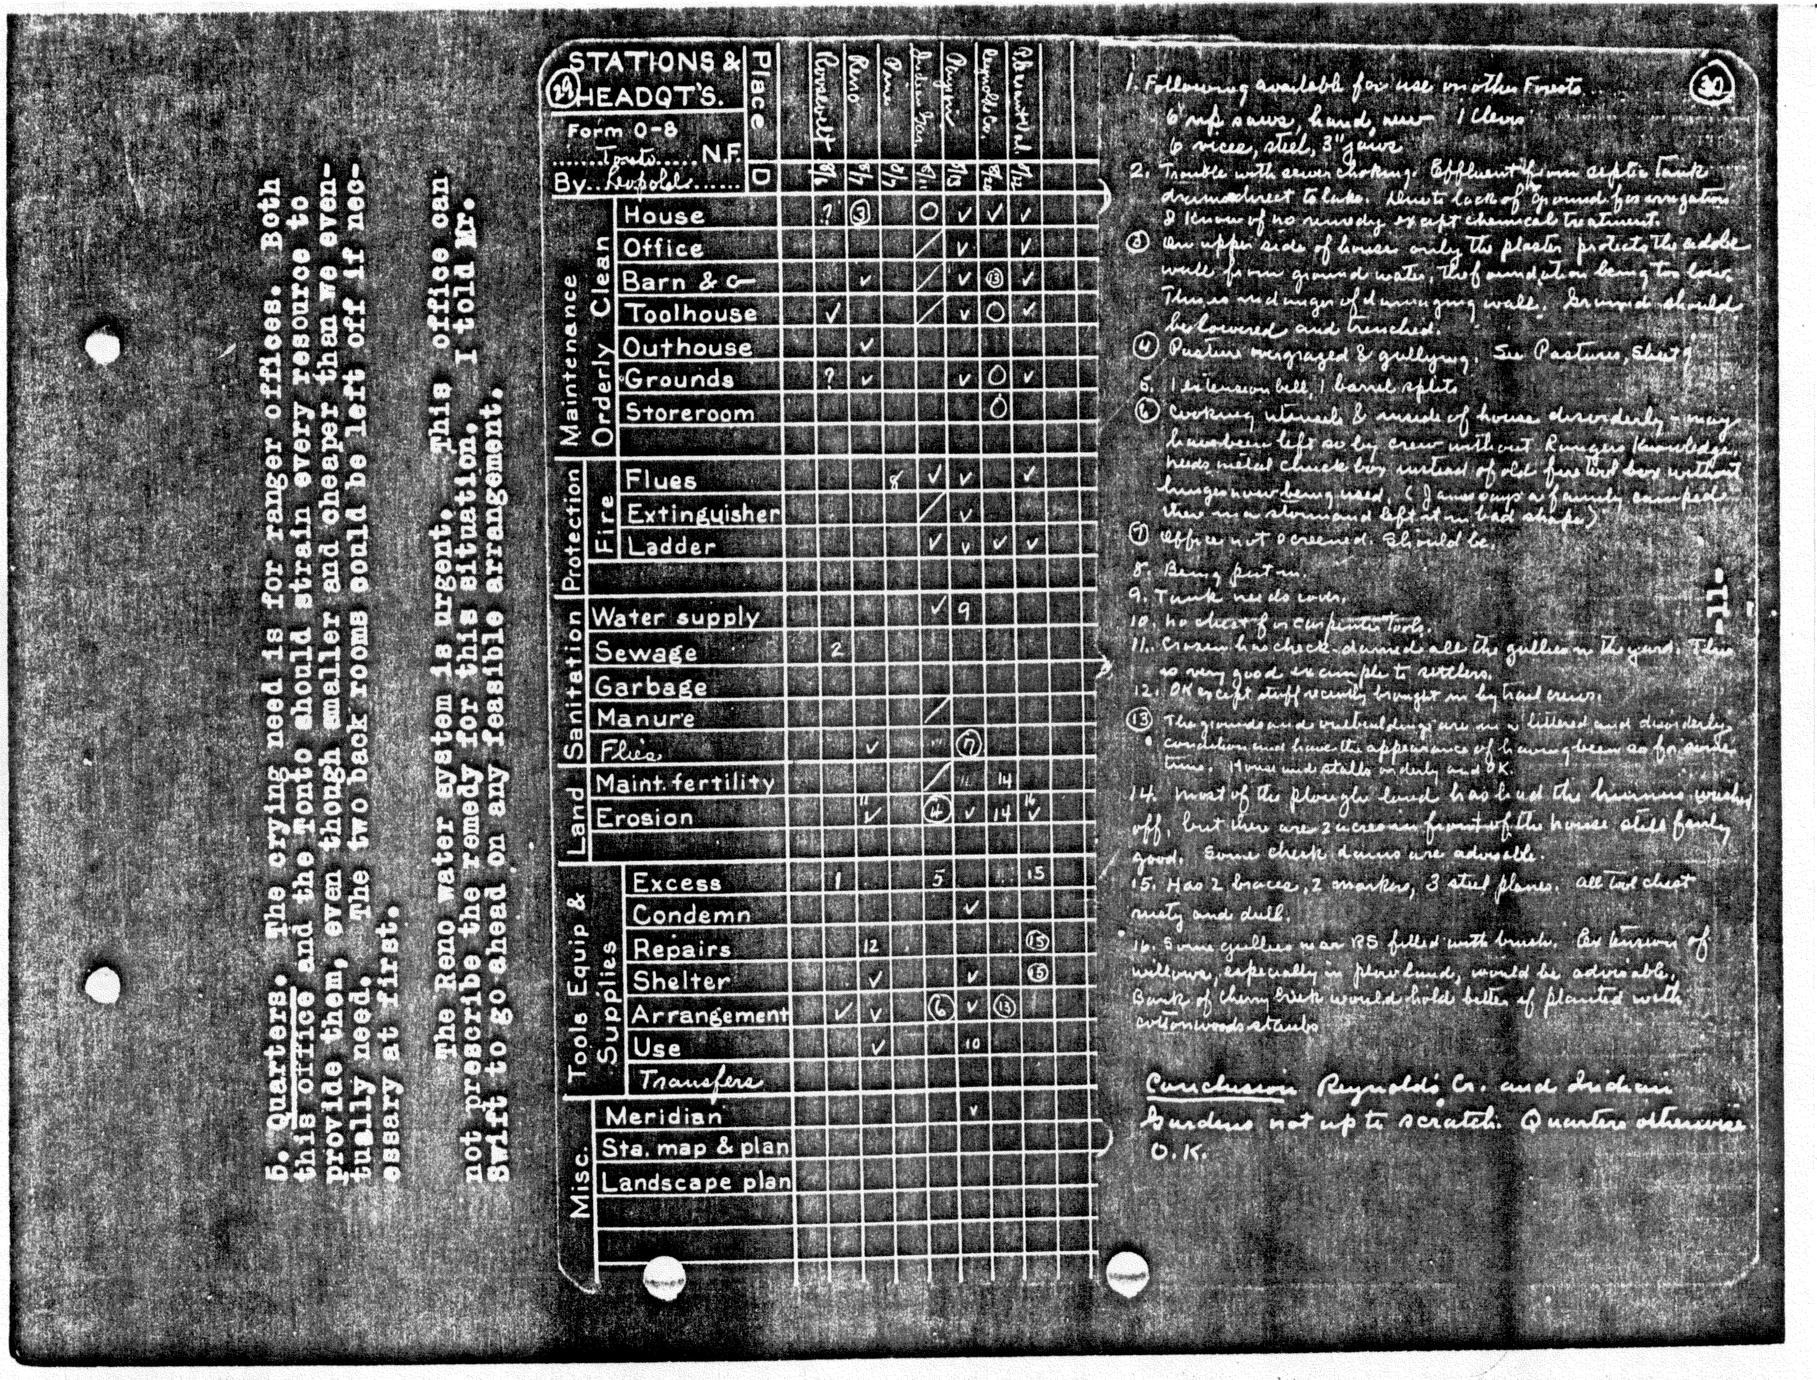 5. Quarters. The crying need is for ranger offices. Both
this office and the Tonto should strain every resource to
provide them, even though smaller and cheaper than we even-
tually need. The two back rooms sould be left off if nec-
essary at first.
The Reno water system is urgent. This office can
not prescribe the remedy for this situation. I told Mr.
Swift to go ahead on any feasible arrangement.
29
STATIONS &
HEADQT'S.
Form O-8
Tonto N.F.
By Leopold
Place Roosevelt Reno Indian Gar. Reynolds Cr. Pleasant Val.
D 8/6 8/7 8/7 8/11 8/13 8/20 8/22
Maintenance
Orderly Clean
House ? 3 O ✓ ✓ ✓
Office / ✓ ✓
Barn & c ✓ / ✓ 13 ✓
Toolhouse ✓ / ✓ O ✓
Outhouse ✓
Grounds ? ✓ ✓ O ✓
Storeroom O
Protection
Fire
Flues 8 ✓ ✓ ✓
Extinguisher / ✓
Ladder ✓ ✓ ✓ ✓
Sanitation
Water supply ✓ 9
Sewage 2
Garbage
Manure /
Flies ✓ " 7
Land
Maint. fertility / " 14
Erosion 11 ✓ 4 ✓ 14 16 ✓
Tools Equip &
Supplies
Excess 1 5 15
Condemn ✓
Repairs 12 15
Shelter ✓ ✓ 15
Arrangement ✓ ✓ 6 ✓ 13
Use ✓ 10
Transfers
Misc.
Meridian ✓
Sta. map & plan
Landscape plan
30
1. Following available for use on other Forests
6 saws, hand, new 1 Clevis
6 vices, steel, 3" jaws
2. Trouble with sewer choking. Effluent from septic tank
drained direct to lake. Due to lack of ground for irrigation
I know of no remedy except chemical treatment.
3 On upper side of house only the plaster protects the adobe
wall from ground water, the foundation being too low.
This is in danger of damaging wall. Ground should
be lowered and trenched.
4 Pasture overgrazed & gullying. See Pastures, Sheet 9
5. 1 extension bell, 1 barrel splits
6 Cooking utensils & inside of house disorderly - may
have been left so by crew without Rangers knowledge.
Needs metal chuck box instead of old fire tool box without
hinges now being used. (James says a family camped
there in a storm and left it in bad shape)
7 Office not screened. Should be.
8. Being put in.
9. Tank needs cover.
10. No chest for carpenter tools.
11. Croxen has check-dammed all the gullies in the yard. This
is very good example to settlers.
12. OK except stuff recently brought in by trail crews.
13 The grounds and outbuildings are in a littered and disorderly
condition and have the appearance of having been so for some
time. House and stalls orderly and OK.
14. Most of the plough land has had the humus washed
off, but there are 2 acres in front of the house still fairly
good. Some check dams are advisable.
15. Has 2 braces, 2 markers, 3 steel planes. All tool chest
rusty and dull.
16. Some gullies near RS filled with brush. Extension of
willows, especially in plow land, would be advisable.
Bank of Cherry Creek would hold better if planted with
cottonwoods
Conclusion Reynolds Cr. and Indian
Gardens not up to scratch. Quarters otherwise
O.K.
-11-